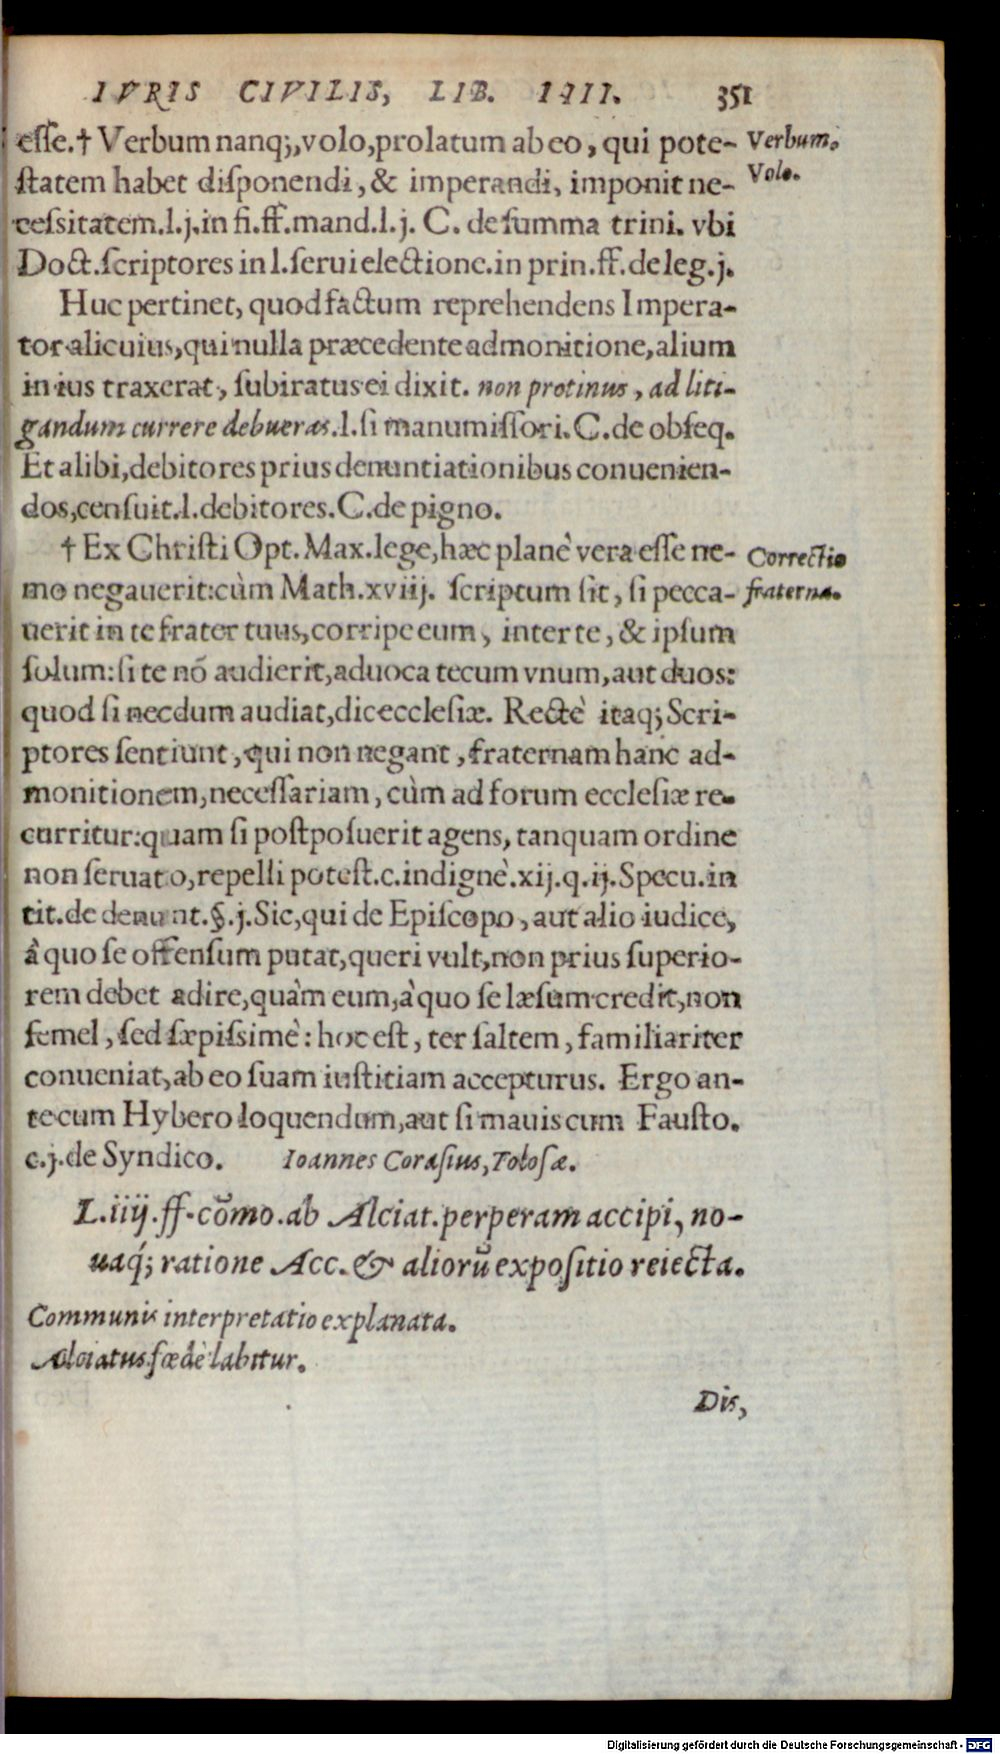 IVRIS CIVILIS, LIB. IIII. 351
eſſe.† Verbum nanq;, volo, prolatum ab eo, qui pote-
ſtatem habet diſponendi, & imperandi, imponit ne-
ceſsitatem.l.j.in fi.ff.mand.l.j. C. de ſumma trini. vbi
Doct.ſcriptores in l.ſerui electione.in prin.ff.de leg.j.
Verbum.
Volo.
Huc pertinet, quod factum reprehendens Impera-
tor alicuius, qui nulla præcedente admonitione, alium
in ius traxerat, ſubiratus ei dixit. non protinus, ad liti-
gandum currere debueras.l.ſi manumiſſori.C.de obſeq.
Et alibi, debitores prius denuntiationibus conuenien-
dos, cenſuit.l.debitores.C.de pigno.
† Ex Chriſti Opt. Max.lege, hæc planè vera eſſe ne-
mo negauerit: cùm Math.xviij. ſcriptum ſit, ſi pecca-
uerit in te frater tuus, corripe eum, inter te, & ipſum
ſolum: ſi te nõ audierit, aduoca tecum vnum, aut duos:
quod ſi necdum audiat, dic eccleſiæ. Rectè itaq; Scri-
ptores ſentiunt, qui non negant, fraternam hanc ad-
monitionem, neceſſariam, cùm ad forum eccleſiæ re-
curritur: quam ſi poſtpoſuerit agens, tanquam ordine
non ſeruato, repelli poteſt.c.indignè.xij.q.ij.Specu.in
tit.de denunt.§.j.Sic, qui de Epiſcopo, aut alio iudice,
à quo ſe offenſum putat, queri vult, non prius ſuperio-
rem debet adire, quàm eum, à quo ſe læſum credit, non
ſemel, ſed ſæpiſsimè: hoc eſt, ter ſaltem, familiariter
conueniat, ab eo ſuam iuſtitiam accepturus. Ergo an-
te cum Hybero loquendum, aut ſi mauis cum Fauſto.
c.j.de Syndico. Ioannes Coraſius, Toloſæ.
Correctio
fraterna.
L.iiij.ff.cõmo.ab Alciat.perperam accipi, no-
uaq́; ratione Acc. & aliorũ expoſitio reiecta.
Communis interpretatio explanata.
Alciatus fœdè labitur.
Dis,
Digitalisierung gefördert durch die Deutsche Forschungsgemeinschaft - DFG